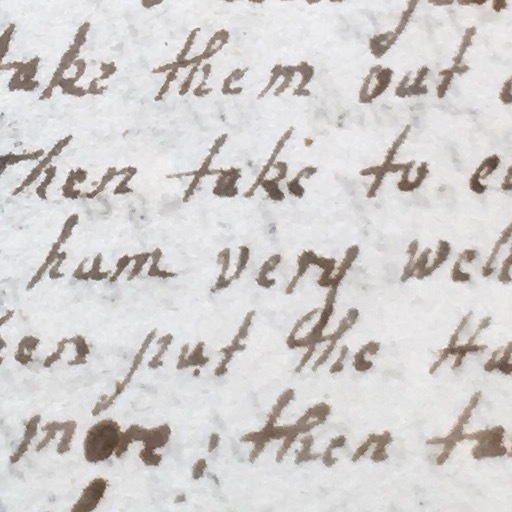 take them out
Then take to
ham very well
put the
more; then